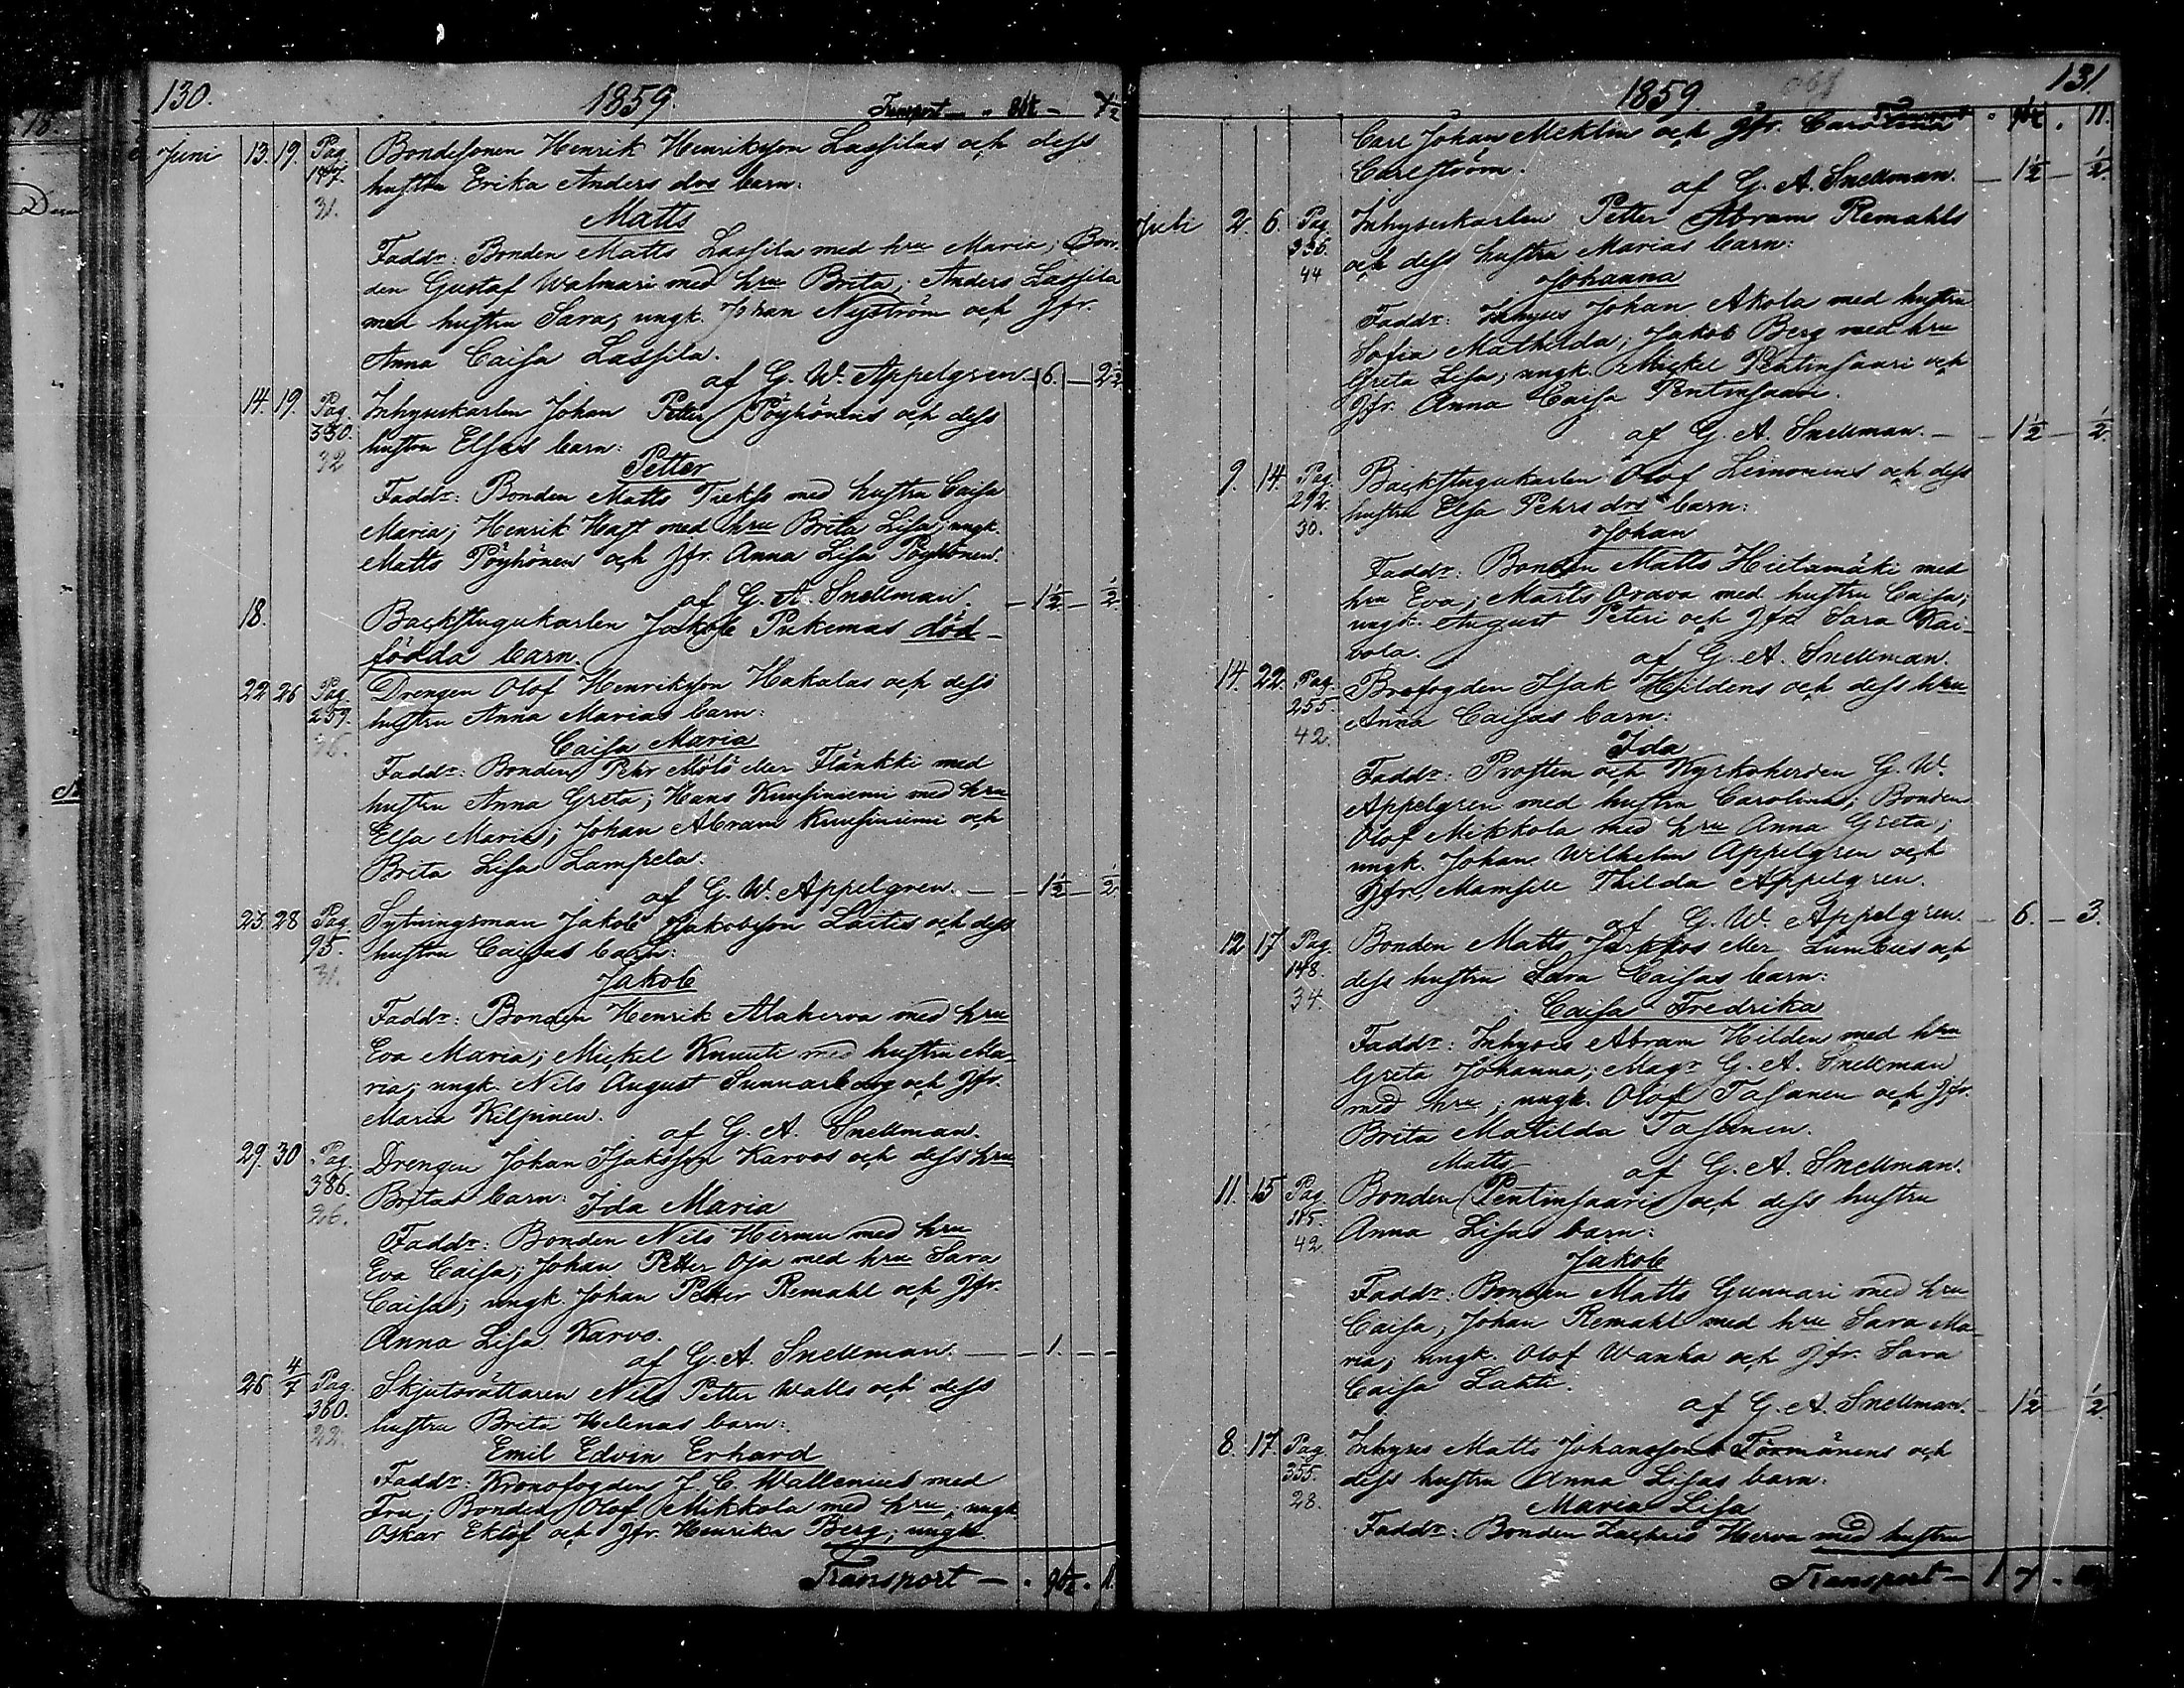 130.
1859.
Transport
Juni 13. 19. Pag. Bondesonen Henrik Henriksson Lassilas och dess
hustru Erika Anders dos barn:
31.
Matts
Faddr: Bonden Matts Lassila med hru Maria; Bon-
den Gustaf Walmari med hru Brita; Anders Lassila
med hustru Sara; ungk. Johan Nyström och Jfr.
Anna Caisa Lassila.
af G. W. Appelgren - 6. - 2½
14. 19. Pag. Inhysekarlen Johan Petter Pöyhönens och dess
330. hustru Elsas barn:
32 Petter
Faddr: Bonden Matts Tiekso med hustru Caisa
Maria; Henrik Hast med hru Brita Lisa; ungk.
Matts Pöyhönen och Jfr. Anna Lisa Pöyhönen.
af G. A. Snellman. - 1½ - ½
18. Backstugukarlen Jakob Pukemas död-
födda barn.
22 26 Pag. Drengen Olof Henriksson Hakalas och dess
259. hustru Anna Marias barn:
Caisa Maria
Faddr: Bonden Pehr Mölö eller Flänkki med
hustru Anna Greta; Hans Kuusiniemi med hru
Elsa Maria; Johan Abram Kuusiniemi och
Brita Lisa Lampela.
af G. W. Appelgren. - 1½ - ½
23. 28 Pag. Sytningsman Jakob Jakobsson Laitis och dess
95. hustru Caisas barn:
31. Jakob
Faddr: Bonden Henrik Alaherva med hru
Eva Maria; Mickel Knuuti med hustru Ma-
ria; ungk. Nils August Sunnarborg och Jfr.
Maria Kilpinen.
af G. A. Snellman.
29. 30 Pag. Drengen Johan Isaksson Karvos och dess hru
386. Britas barn: Ida Maria
26.
Faddr: Bonden Nils Hermu med hru
Eva Caisa; Johan Petter Oja med hru Sara
Caisa; ungk. Johan Petter Remahl och Jfr.
Anna Lisa Karvo.
af G. A. Snellman. - 1. -
26 4/7 Pag. Skjutsrättaren Nils Petter Walls och dess
360. hustru Brita Helenas barn:
22. Emil Edvin Erhard
Faddr: Kronofogden J. C. Wallenius med
Fru; Bonden Olof Mikkola med hru; ungk
Oskar Eklöf och Jfr. Henrika Berg; ungk.
Transport
131.
1859.
Transport 11.
Carl Johan Meklin och Jfr. Carolina
Carlström.
af G. A. Snellman. - 1½ - ½.
Juli 2. 6. Pag. Inhysekarlen Petter Abram Remahls
336. och dess hustru Marias barn:
44 Johanna
Faddr: Inhyses Johan Akola med hustru
Sofia Mathilda; Jakob Berg med hru
Greta Lisa; ungk. Mickel Pentinsaari och
Jfr. Anna Caisa Pentinsaari.
af G. A. Snellman. - 1½ - ½.
9. 14. Pag. Backstugukarlen Olof Leinonens och dess
292. hustru Elsa Pehrs dos barn:
30. Johan
Faddr: Bonden Matts Hietamäki med
hru Eva; Matts Orava med hustru Caisa;
ungk. August Peteri och Jfr. Sara Kai-
vola.
af G. A. Snellman.
14. 22. Pag. Brofogden Isak Hildens och dess hru
255. Anna Caisas barn:
42. Ida
Faddr: Prosten och Kyrkoherden G. W.
Appelgren med hustru Carolina; Bonden
Olof Mikkola med hru Anna Greta;
ungk. Johan Wilhelm Appelgren och
Jfr. Mamsell Thilda Appelgren.
af G. W. Appelgren. - 6. - 3.
12 17 Pag. Bonden Matts Jarkkos eller Lumbus och
148. dess hustru Sara Caisas barn:
34. Caisa Fredrika
Faddr: Inhyses Abram Hilden med hru
Greta Johanna; Magr G. A. Snellman
med hru; ungk. Olof Tasanen och Jfr.
Brita Matilda Tasanen.
af G. A. Snellman.
Matts
11. 15 Pag. Bonden Pentinsaaris och dess hustru
Anna Lisas barn:
42. Jakob
Faddr: Bonden Matts Gunnari med hru
Caisa; Johan Remahl med hru Sara Ma-
ria; ungk. Olof Wanha och Jfr. Sara
Caisa Lahti.
af G. A. Snellman. - 1½ - ½.
8. 17. Pag. Inhyses Matts Johansson Törmänens och
355. dess hustru Anna Lisas barn:
28. Maria Lisa
Faddr: Bonden Zachris Herva med hustru
Transport - 1 7